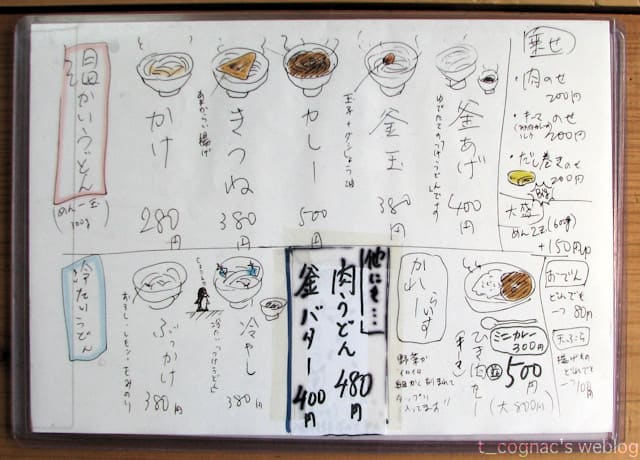 温かいうどん
(めん一玉 300g)
かけ
280円
きつね
380円
あまからい揚げ
カレー
500円
釜玉
380円
玉子+ダシしょう油
釜あげ
400円
ゆでたてのつけうどんです
乗せ
・肉のせ
200円
・キーマのせ
200円
・だし巻きのせ
200円
大盛
めん2玉(600g)
+150円
冷たいうどん
ぶっかけ
380円
おろし・レモン・きざみのり
冷やし
380円
冷たいつけうどん
他にも…
肉うどん 480円
釜バター 400円
かれーらいす
ひき肉カレー
(キーマ)
並500円
(大800円)
ミニカレー
300円
野菜が
イロイロ
細かく刻まれて
タップリ
入ってます!!
おでん
どれでも
一つ 80円
天ぷら
揚げもの
どれでも
一つ100円
t_cognac's weblog